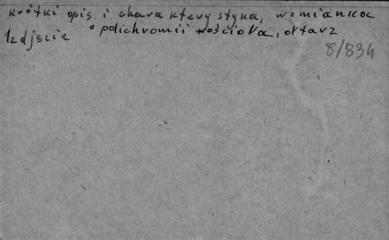 krótki opis i charakterystyka, wzmianka
1 zdjęcie o polichromii kościoła, ołtarz
8/834